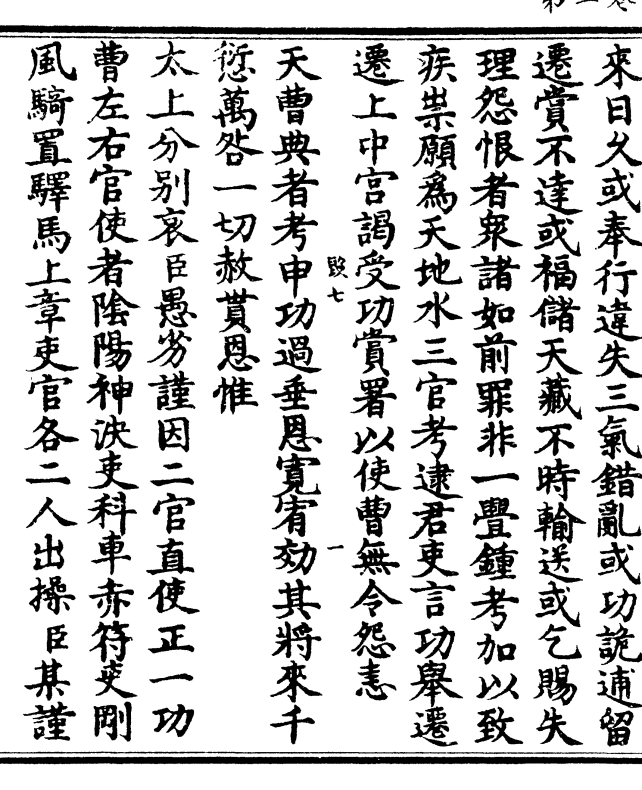 來日久或奉行違失三氣錯亂或功詭逋留
遷賞不達或福儲天藏不時輸送或乞賜失
理怨恨者衆諸如前罪非一舋鍾考加以致
疾祟願爲天地水三官考逮君吏言功舉遷
遷上中宫謁受功賞署以使曹無令怨恚
毁七 一
天曹典者考申功過垂恩寬宥効其將來千
愆萬咎一切赦貰恩惟
太上分别哀臣愚劣謹因二官直使正一功
曹左右官使者陰陽神決吏科車赤符吏剛
風騎置驛馬上章吏官各二人出操臣某謹